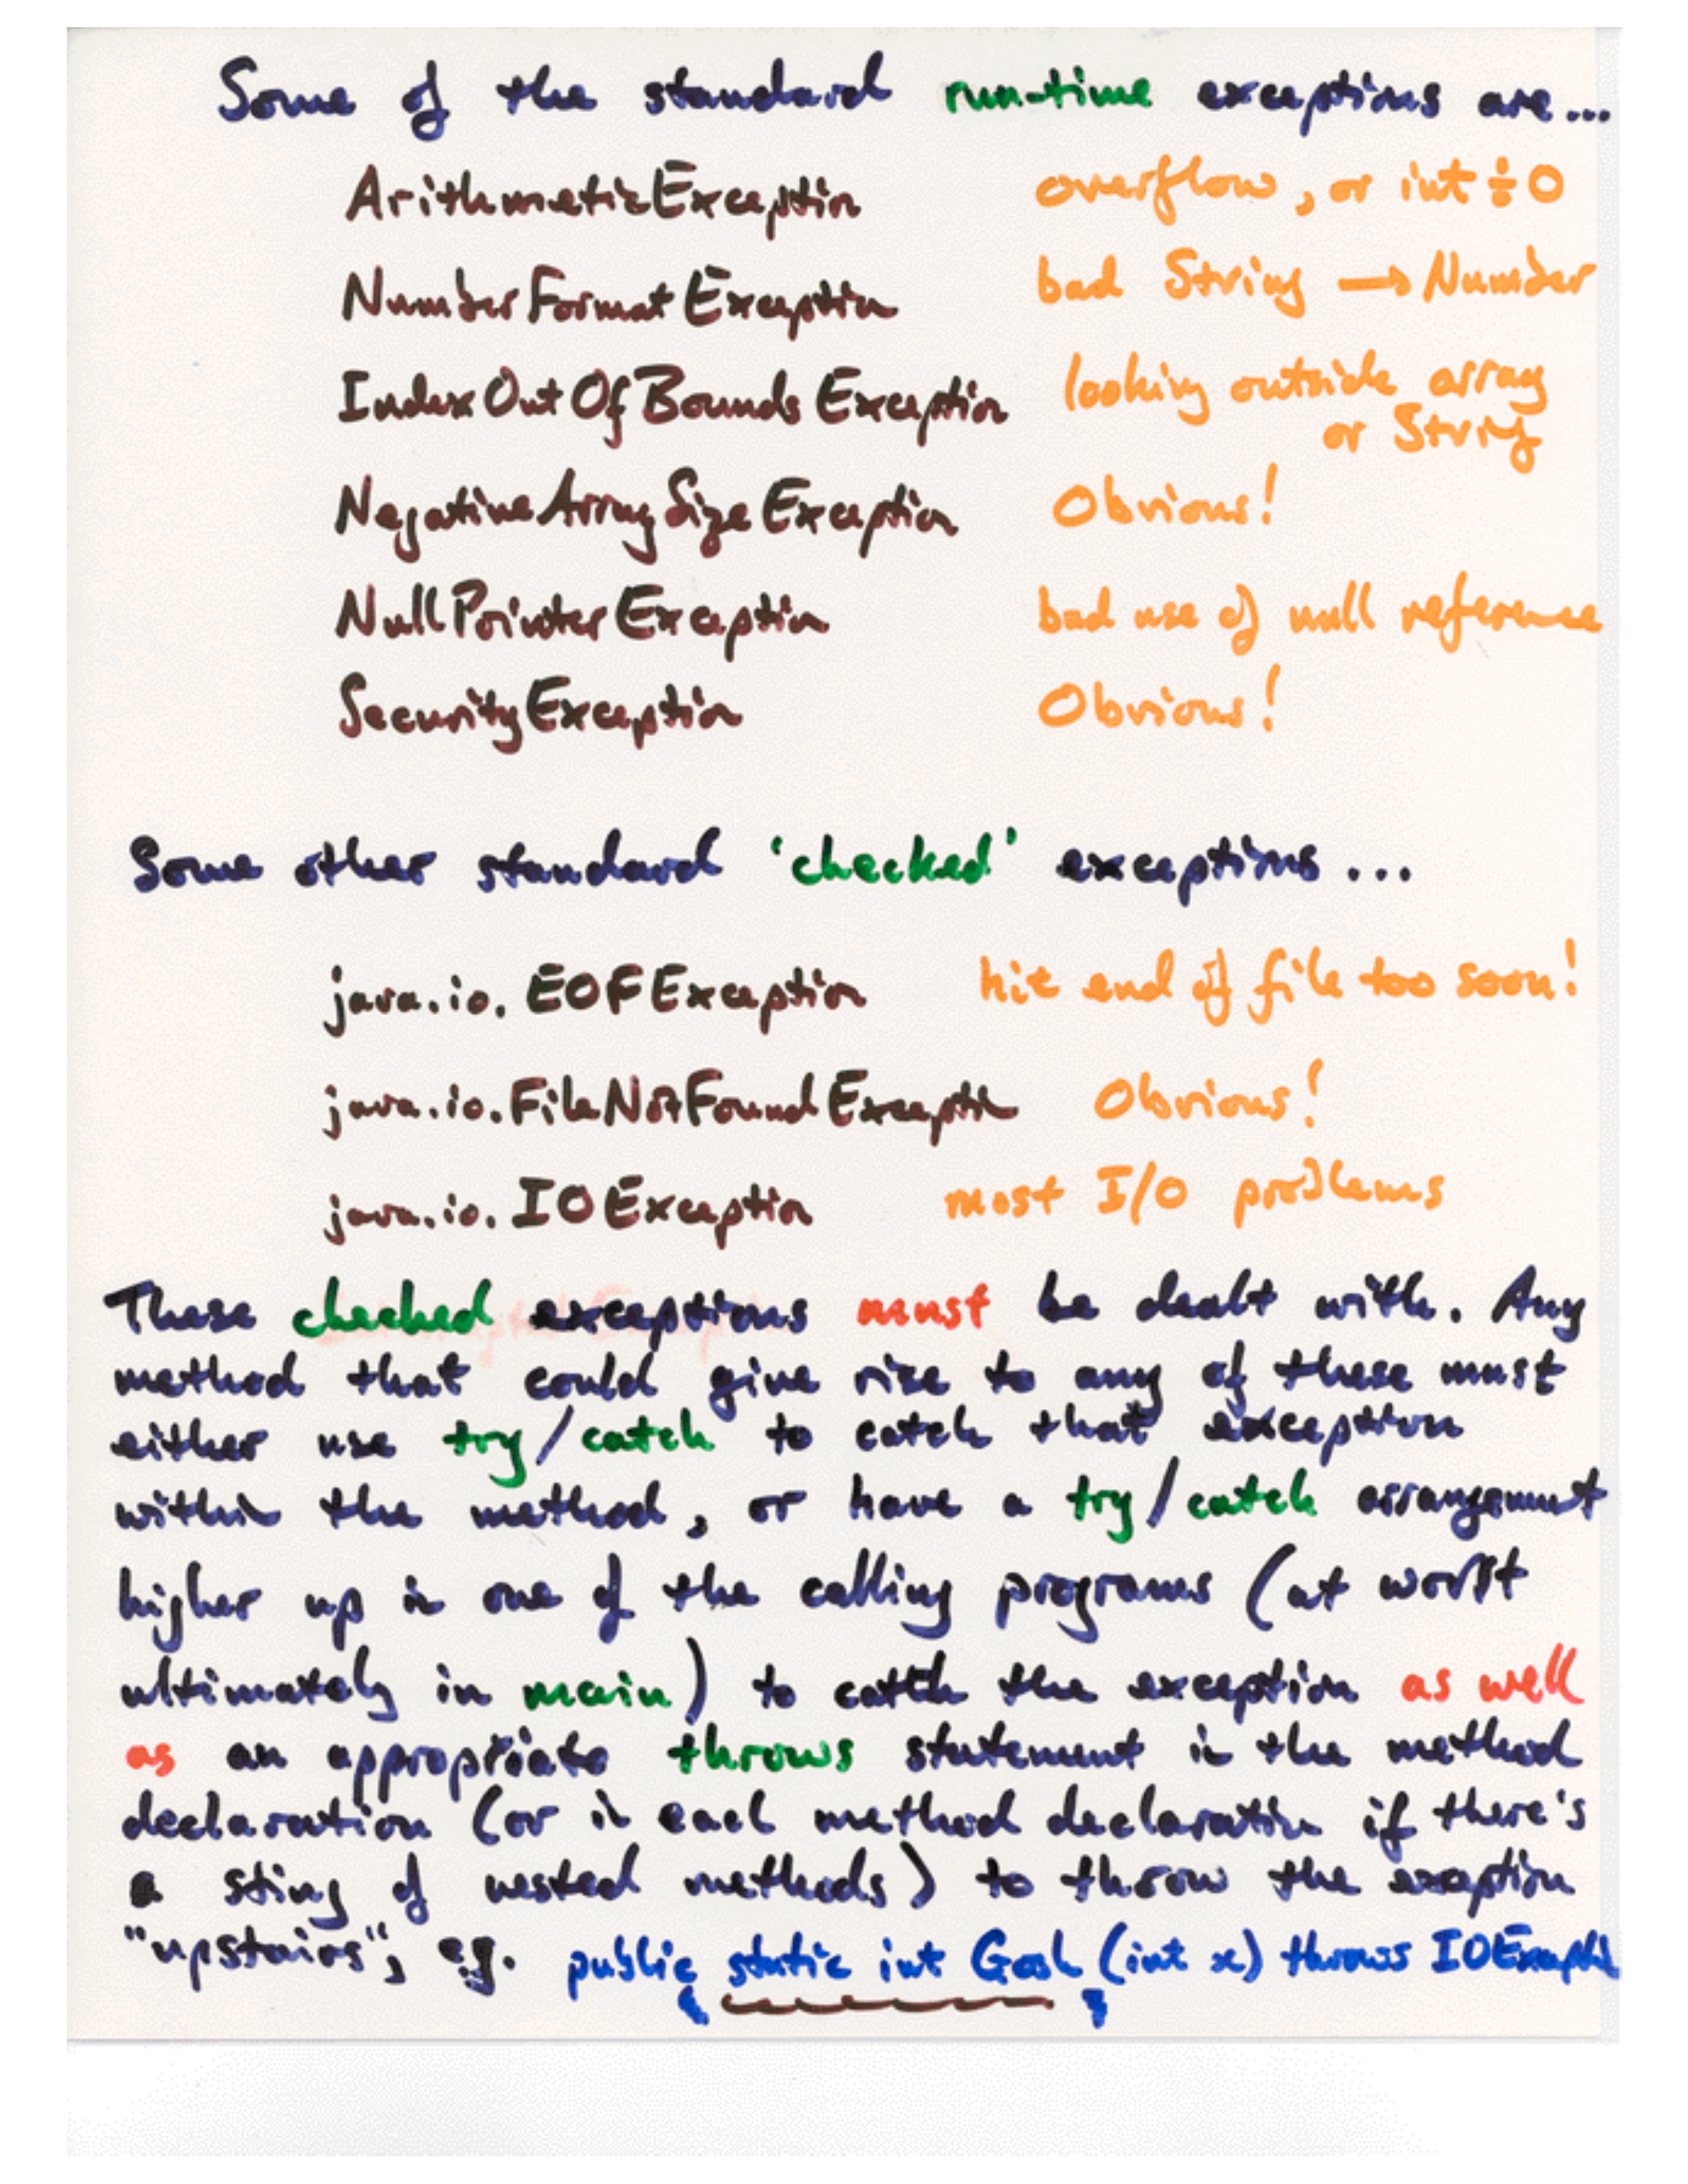 Some of the standard run-time exceptions are...
ArithmeticException overflow, or int ÷ 0
NumberFormatException bad String → Number
IndexOutOfBoundsException looking outside array
or String
NegativeArraySizeException Obvious!
NullPointerException bad use of null reference
SecurityException Obvious!
Some other standard 'checked' exceptions...
java.io.EOFException hit end of file too soon!
java.io.FileNotFoundException Obvious!
java.io.IOException most I/O problems
These checked exceptions must be dealt with. Any
method that could give rise to any of these must
either use try/catch to catch that exception
within the method, or have a try/catch arrangement
higher up in one of the calling programs (at worst
ultimately in main) to catch the exception as well
as an appropriate throws statement in the method
declaration (or in each method declaration if there's
a sting of nested methods) to throw the exception
"upstairs", e.g. public static int Gosh (int x) throws IOException
{ }